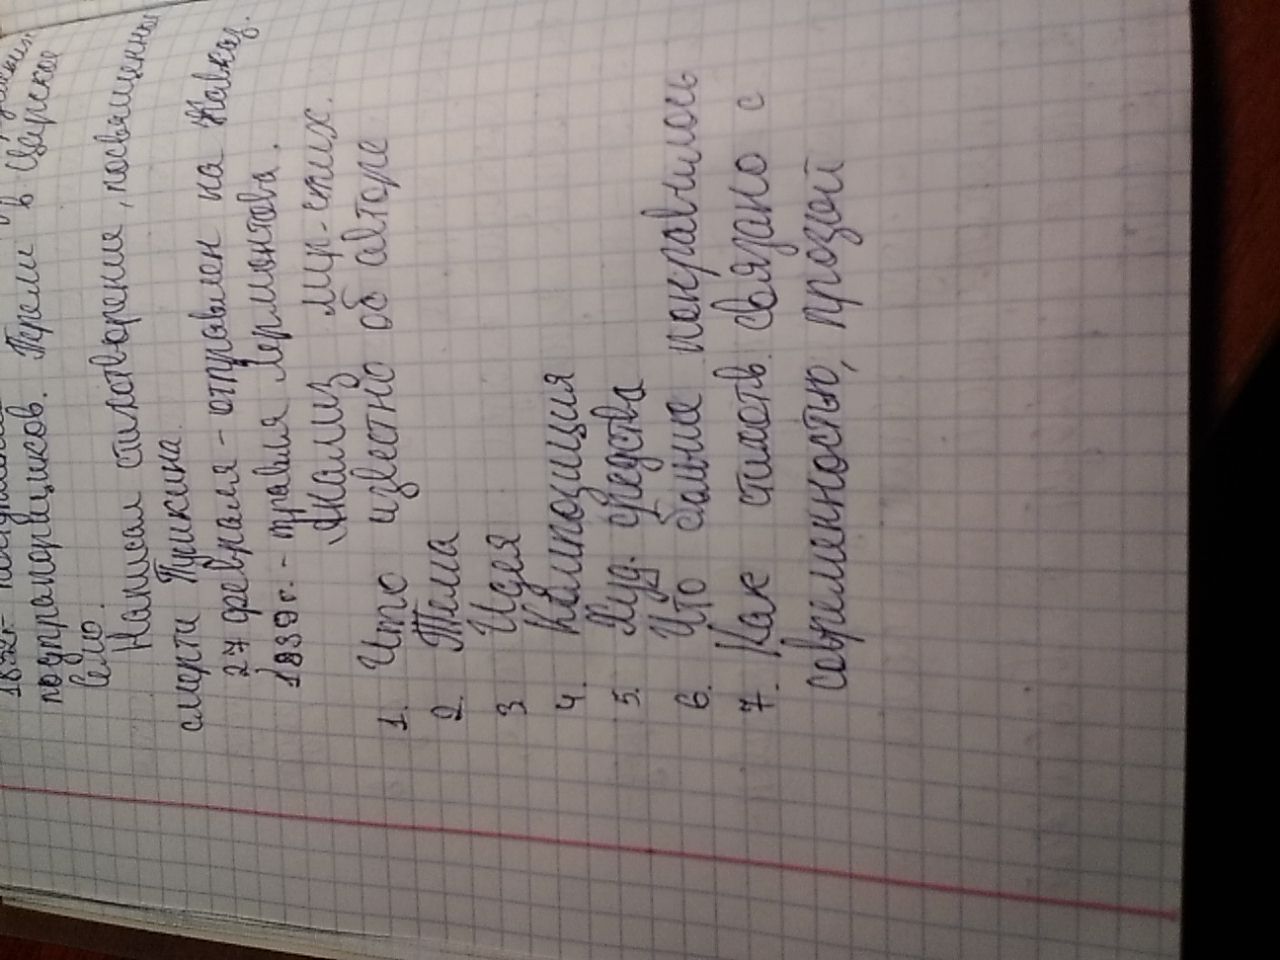 подпрапорщиков. Перевели в Царское
Село.
Написал стихотворение, посвященны
смерти Пушкина.
27 февраля - отправлен на Кавказ.
1839 г. - травля Лермонтова.
Анализ лир-ских.
1. Что известно об авторе
2. Тема
3 Идея
4. Композиция
5. Худ. средства
6. Что больше понравилось
7. Как стихотв. связано с
современностью, прозой